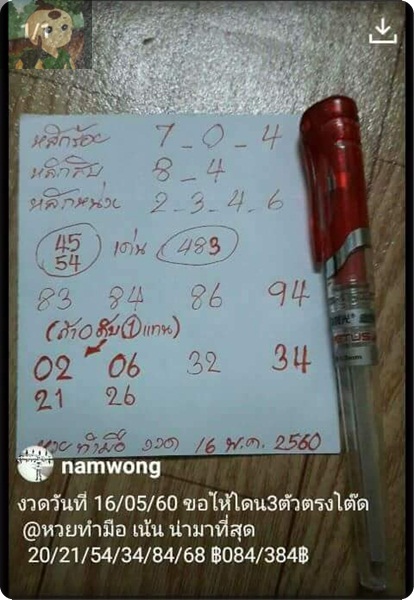 1/1
หลักร้อย 7_0_4
หลักสิบ 8_4
หลักหน่วย 2_3_4_6
45
54 เด่น 483
83 84 86 94
(ถ้า0ดับ①แทน)
02 06 32 34
21 26
หวย ทำมือ งวด 16 พ.ค. 2560
namwong
งวดวันที่ 16/05/60 ขอให้โดน3ตัวตรงโต๊ด
@หวยทำมือ เน้น น่ามาที่สุด
20/21/54/34/84/68 ฿084/384฿